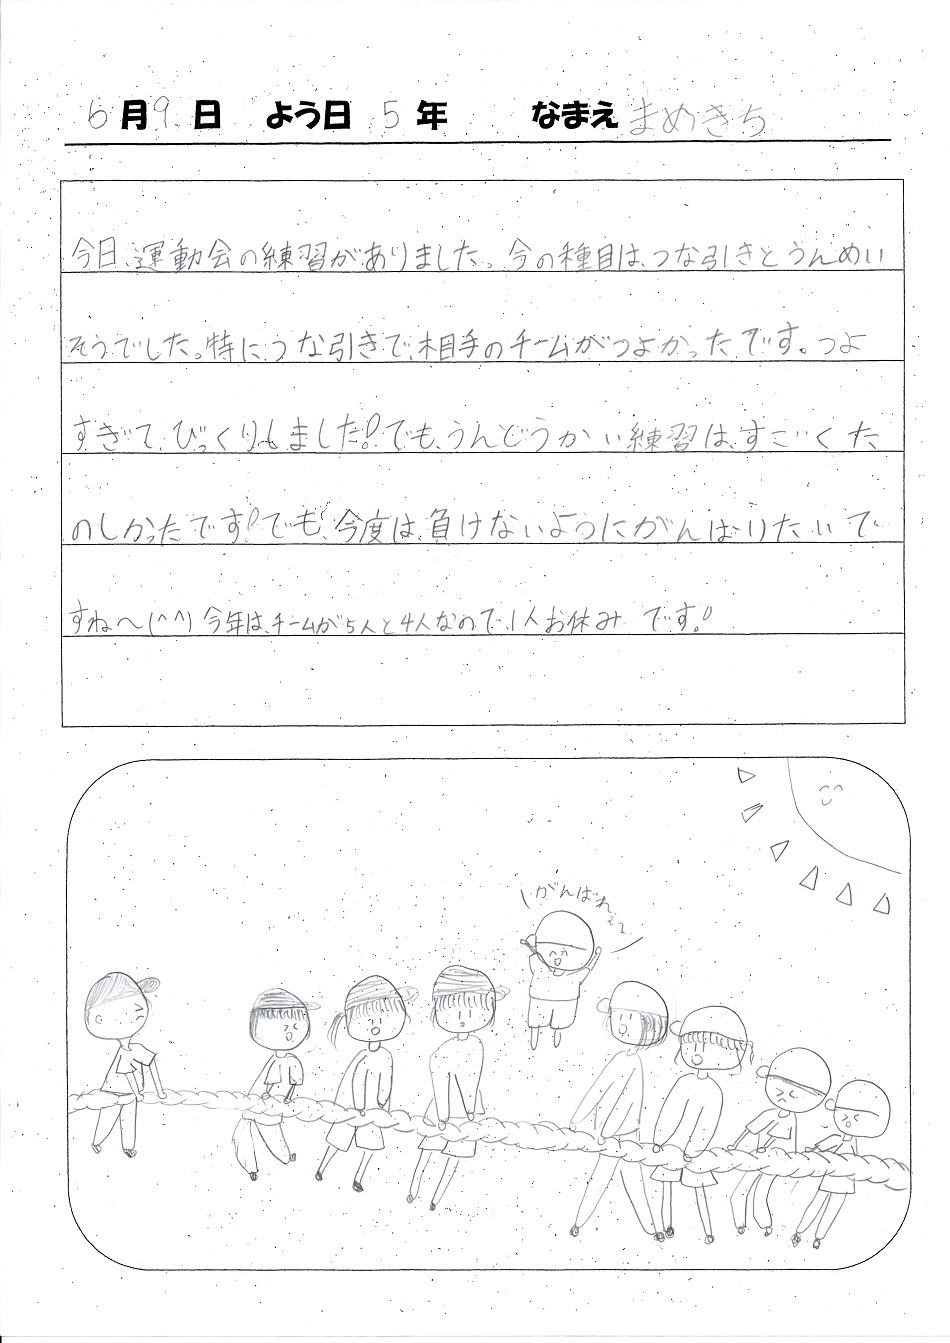 6月9日 よう日 5年 なまえ まめきち
今日、運動会の練習がありました。今の種目は、つな引きとうんめい
そうでした。特に、つな引きで、相手のチームがつよかったです。つよ
すぎて、びっくりしました!でも、うんどうかい練習は、すごくた
のしかったです!でも、今度は、負けないようにがんばりたいで
すね～(^^) 今年は、チームが5人と4人なので、1人お休みです!
がんばれぇぇ